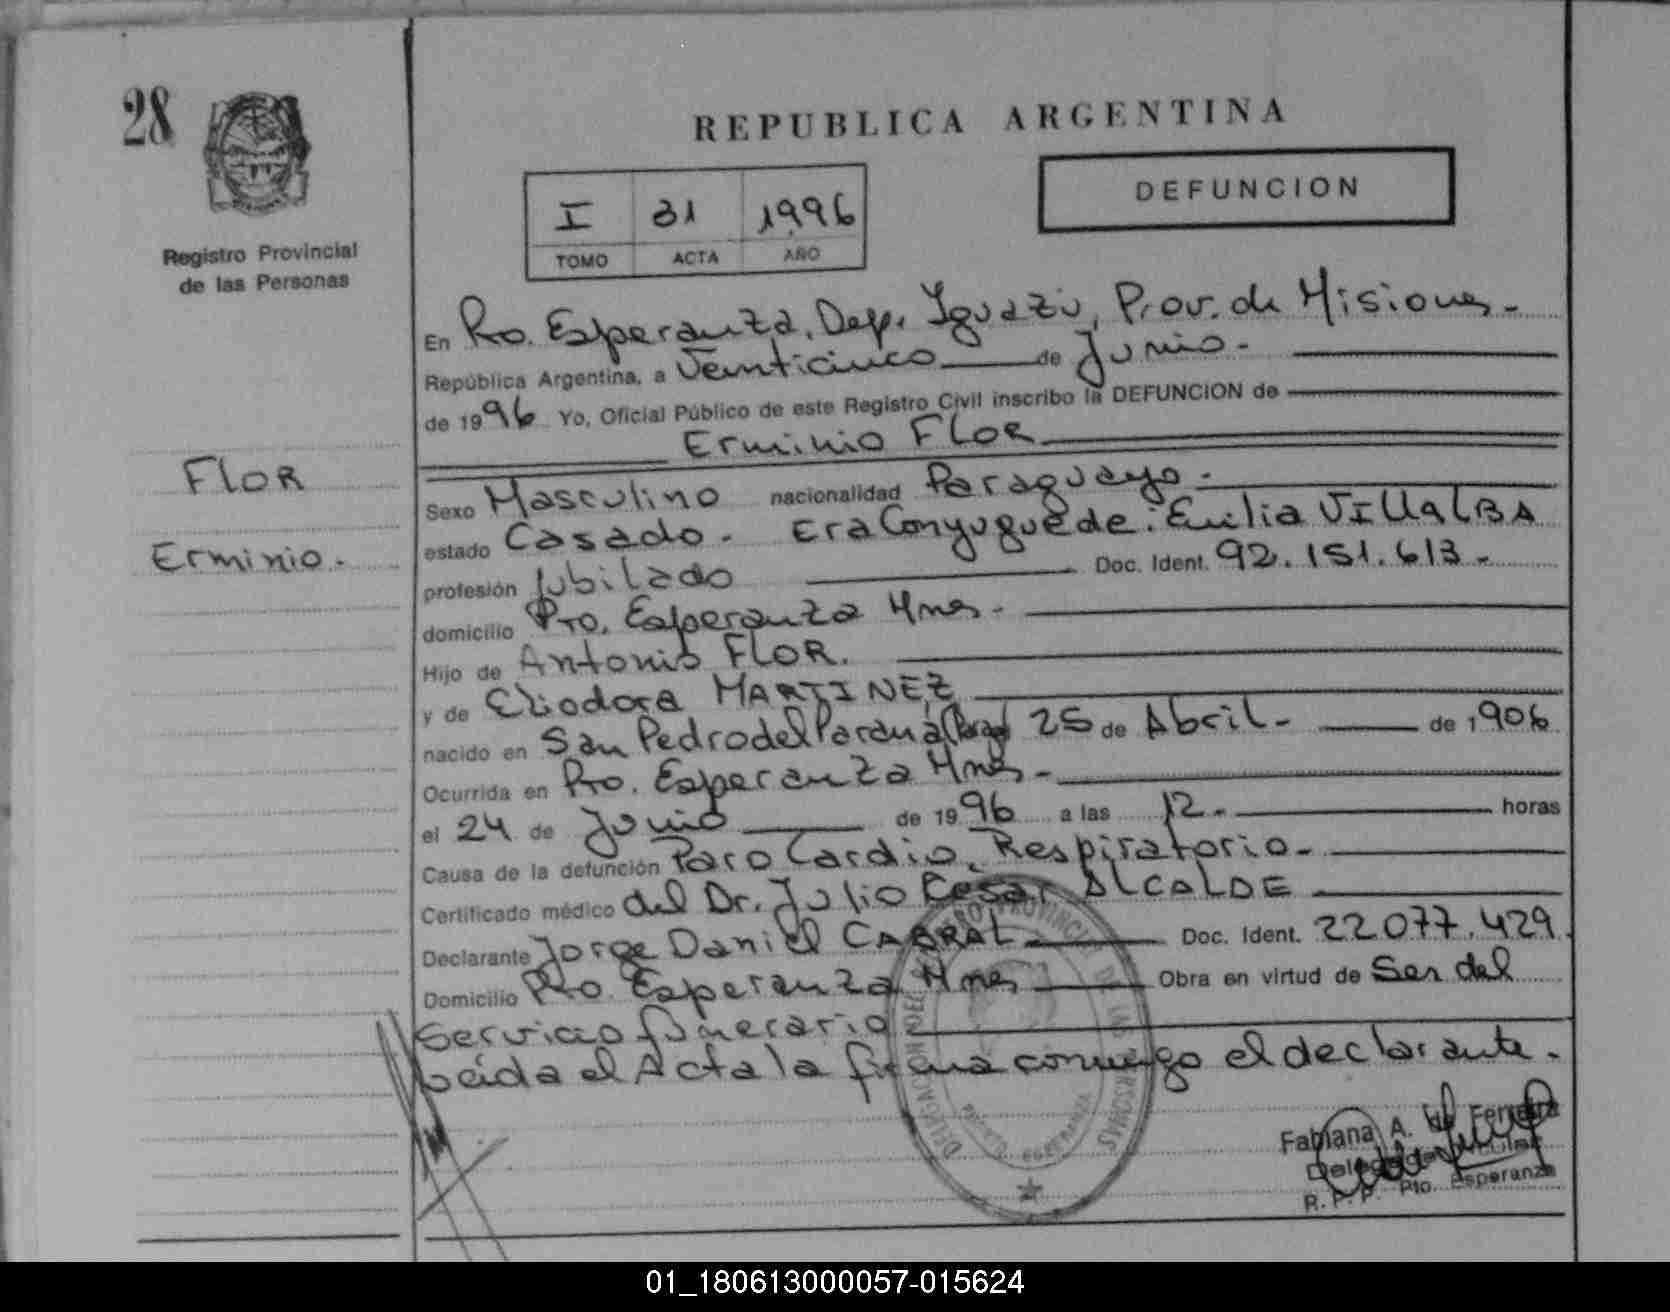 28
REPUBLICA ARGENTINA
DEFUNCION
I 31 1996
TOMO ACTA AÑO
Registro Provincial
de las Personas
En Pto. Esperanza, Dep. Iguazú, Prov. de Misiones.-
República Argentina, a Veinticinco de Junio.-
de 1996 Yo, Oficial Público de este Registro Civil inscribo la DEFUNCION de
Erminio FLOR
FLOR
Erminio.
Sexo Masculino nacionalidad Paraguayo.-
estado Casado.- Era Conyugue de: Emilia VILLALBA
profesión Jubilado Doc. Ident. 92.151.613.-
domicilio Pto. Esperanza Mnes.-
Hijo de Antonio FLOR.
y de Eliodora MARTINEZ
nacido en San Pedro del Paraná (Parag) 25 de Abril.- de 1906
Ocurrida en Pto. Esperanza Mnes.-
el 24 de Junio de 1996 a las 12.- horas
Causa de la defunción Paro Cardio, Respiratorio.-
Certificado médico del Dr. Julio César ALCALDE
Declarante Jorge Daniel CABRAL Doc. Ident. 22077.429.
Domicilio Pto Esperanza Mnes Obra en virtud de Ser del
Servicio funerario
Leida el Acta la firma conmigo el declarante.-
DELEGACION DEL REGISTRO PROVINCIAL DE LAS PERSONAS
PUERTO ESPERANZA
Fabiana A. de Ferreira
R.P.P. Pto. Esperanza
01_180613000057-015624